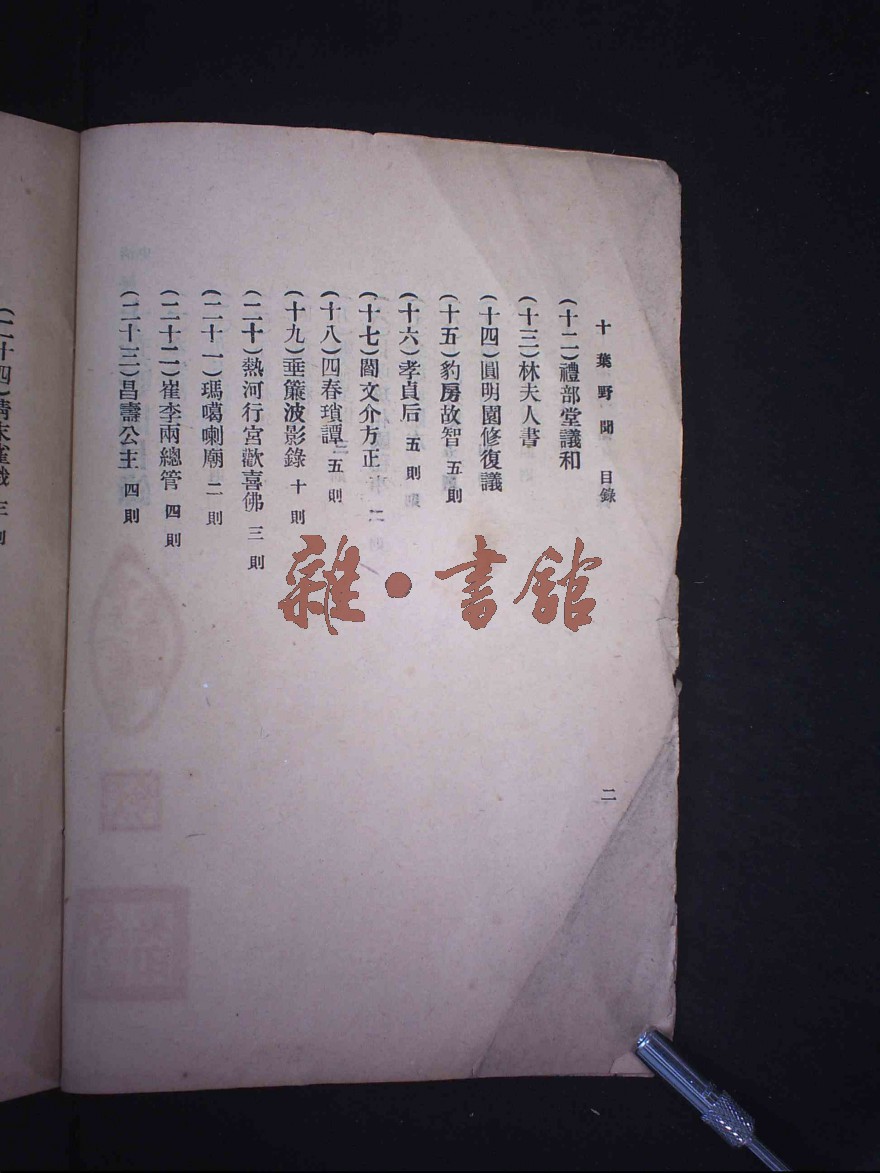 十葉野聞 目錄
二
(十二)禮部堂議和
(十三)林夫人書
(十四)圓明園修復議
(十五)豹房故智 五則
(十六)孝貞后 五則
(十七)閻文介方正 二
(十八)四春瑣譚 五則
(十九)垂簾波影錄 十則
(二十)熱河行宮歡喜佛 三則
(二十一)瑪噶喇廟 二則
(二十二)崔李兩總管 四則
(二十三)昌壽公主 四則
(二十四)清末 三則
雜·書館